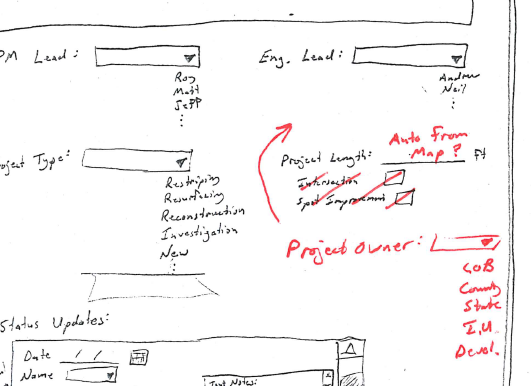 PM Lead:
Roy
Matt
Jeff
Eng. Lead:
Andrew
Neil
Project Type:
Restriping
Resurfacing
Reconstruction
Investigation
New
Auto From
Map?
Project Length: Ft
Intersection
Spot Improvement
Project Owner:
COB
County
State
I.U.
Devel.
Status Updates:
Date / /
Name
Text Notes: